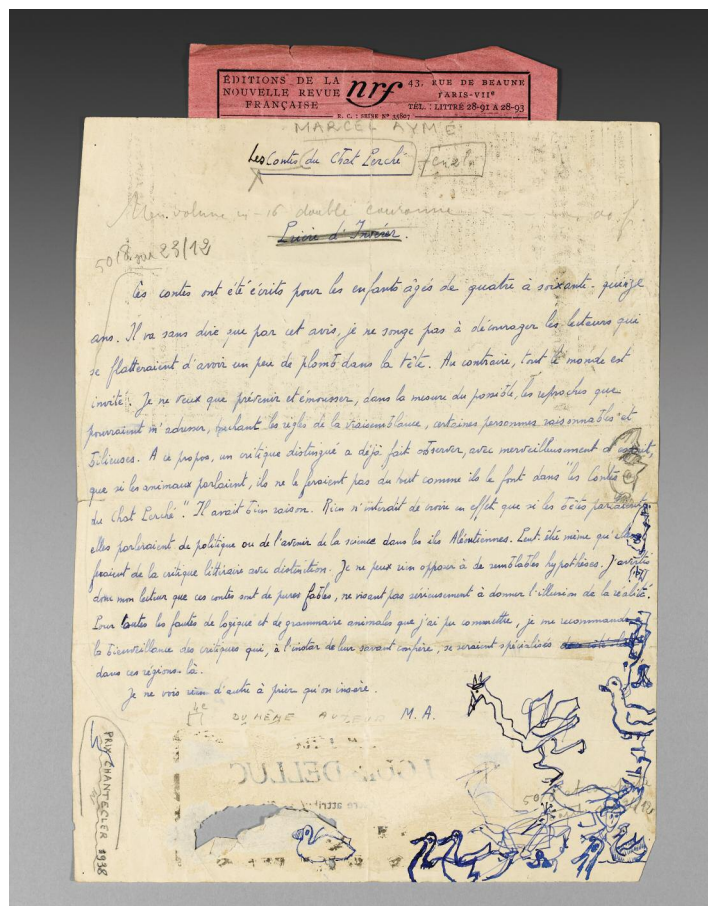 ÉDITIONS DE LA
NOUVELLE REVUE
FRANÇAISE
nrf
43, RUE DE BEAUNE
PARIS-VIIe
TÉL. : LITTRÉ 28-91 A 28-93
R. C. : SEINE N° 35807
MARCEL AYMÉ
Les Contes du Chat Perché
Un volume in-16 double couronne
Prière d'Insérer.
50 18 sur 23/12
Ces contes ont été écrits pour les enfants âgés de quatre à soixante-quinze
ans. Il va sans dire que par cet avis, je ne songe pas à décourager les lecteurs qui
se flatteraient d'avoir un peu de plomb dans la tête. Au contraire, tout le monde est
invité. Je ne veux que prévenir et émousser, dans la mesure du possible, les reproches que
pourraient m'adresser, touchant les règles de la vraisemblance, certaines personnes raisonnables et
bilieuses. A ce propos, un critique distingué a déjà fait observer, avec merveilleusement d'esprit,
que si les animaux parlaient, ils ne le feraient pas du tout comme ils le font dans "les Contes
du Chat Perché". Il avait bien raison. Rien n'interdit de croire en effet que si les bêtes parlaient,
elles parleraient de politique ou de l'avenir de la science dans les îles Aléoutiennes. Peut-être même qu'elles
feraient de la critique littéraire avec distinction. Je ne peux rien opposer à de semblables hypothèses. J'avertis
donc mon lecteur que ces contes sont de pures fables, ne visant pas sérieusement à donner l'illusion de la réalité.
Pour toutes les fautes de logique et de grammaire animales que j'ai pu commettre, je me recommande à
la bienveillance des critiques qui, à l'instar de leur savant confrère, se seraient spécialisés
dans ces régions-là.
Je ne vois rien d'autre à prier qu'on insère.
DU MÊME AUTEUR M.A.
PRIX CHANTECLER 1938
LOUIS DELLUC